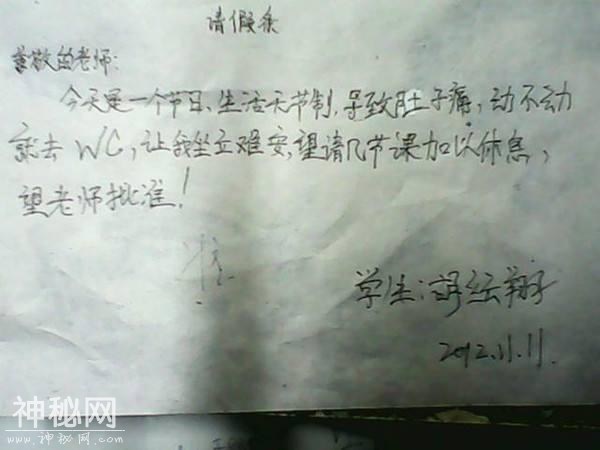 请假条
尊敬的老师:
今天是一个节日、生活无节制,导致肚子痛,动不动
就去WC,让我坐立难安,望请几节课加以休息,
望老师批准!
准
学生:
2012.11.11.
神秘网
www.神秘网.com